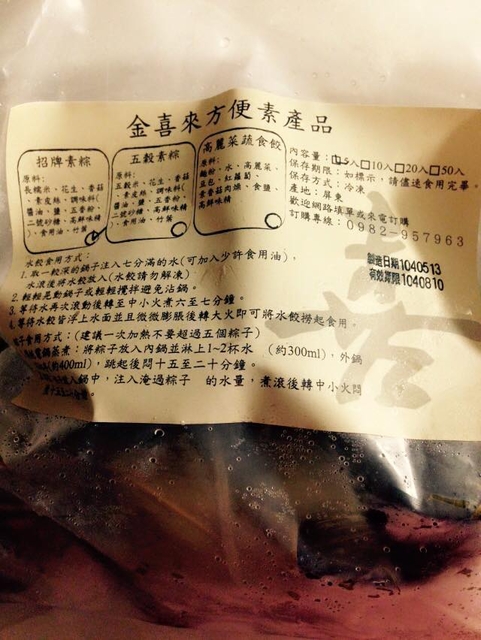 金喜來方便素產品
招牌素粽
原料:
長糯米、花生、香菇
、素皮絲、調味料(
醬油、鹽、五香粉、
二號砂糖、高鮮味精
)、食用油、竹葉
五穀素粽
原料:
五穀米、花生、香菇
、素皮絲、調味料(
醬油、鹽、五香粉、
二號砂糖、高鮮味精
)、食用油、竹葉
高麗菜蔬食餃
原料:
麵粉、水、高麗菜、
豆包、紅蘿蔔、
食用油、
高鮮味精
內容量:□5入□10入□20入□50入
保存期限:如標示,請儘速食用完畢。
保存方式:冷凍
產地:屏東
歡迎網路填單或來電訂購
訂購專線:0982-957963
製造日期1040513
有效期限1040810
水餃食用方式:
1.取一較深的鍋子注入七分滿的水(可加入少許食用油),
水滾後將水餃放入(水餃請勿解凍)
2.輕輕晃動鍋子或輕輕攪拌避免沾鍋。
3.等待水再次滾動後轉至中小火煮六至七分鐘。
4.等待水餃皆浮上水面並且微微膨脹後轉大火即可將水餃撈起食用。
粽子食用方式:(建議一次加熱不要超過五個粽子)
電鍋蒸煮:將粽子放入內鍋並淋上1~2杯水 (約300ml),外鍋
(約400ml),跳起後悶十五至二十分鐘。
放入鍋中,注入淹過粽子 的水量,煮滾後轉中小火悶